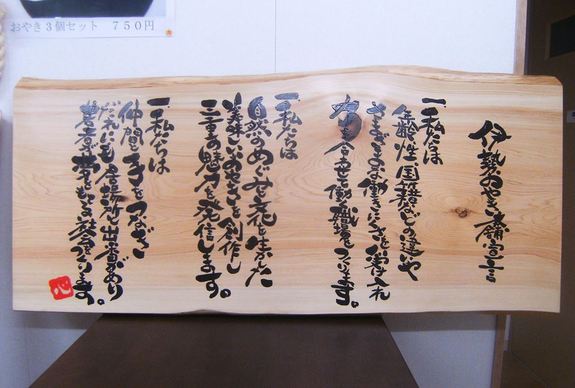 おやき3個セット 750円
伊勢おやき本舗宣言
一、私たちは
年齢性国籍などの違いや
さまざまな働きにくさを受け入れ
力を合わせて働く職場をつくります。
一、私たちは
自然のめぐみと文化を生かした
美味しいおやきを創作し
三重の魅力を発信します。
一、私たちは
仲間と手をつなぎ
だれにも居場所と出番があり
若者が夢をもてる社会をつくります。
心